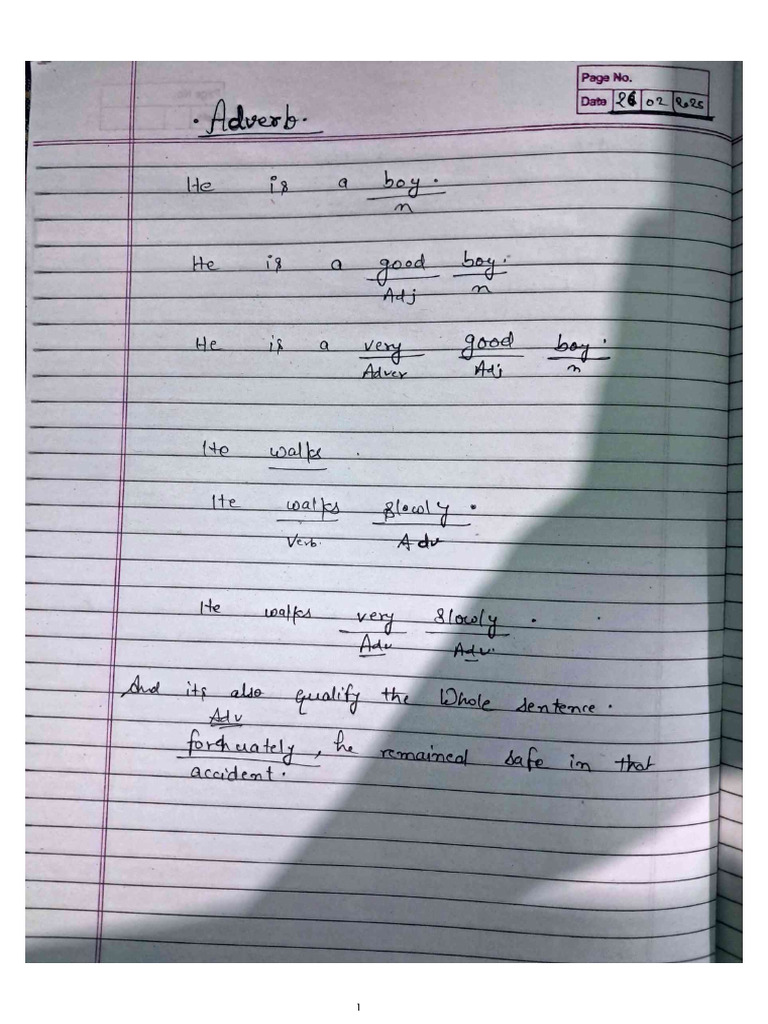 Page No.
Date 26 02 2025
. Adverb.
He is a boy.
n
He is a good boy.
Adj n
He is a very good boy.
Adver Adj n
He walks .
He walks slowly .
Verb. Adv
He walks very slowly .
Adv Adv.
And its also qualify the Whole sentence.
Adv
forthuately, he remained safe in that
accident.
1